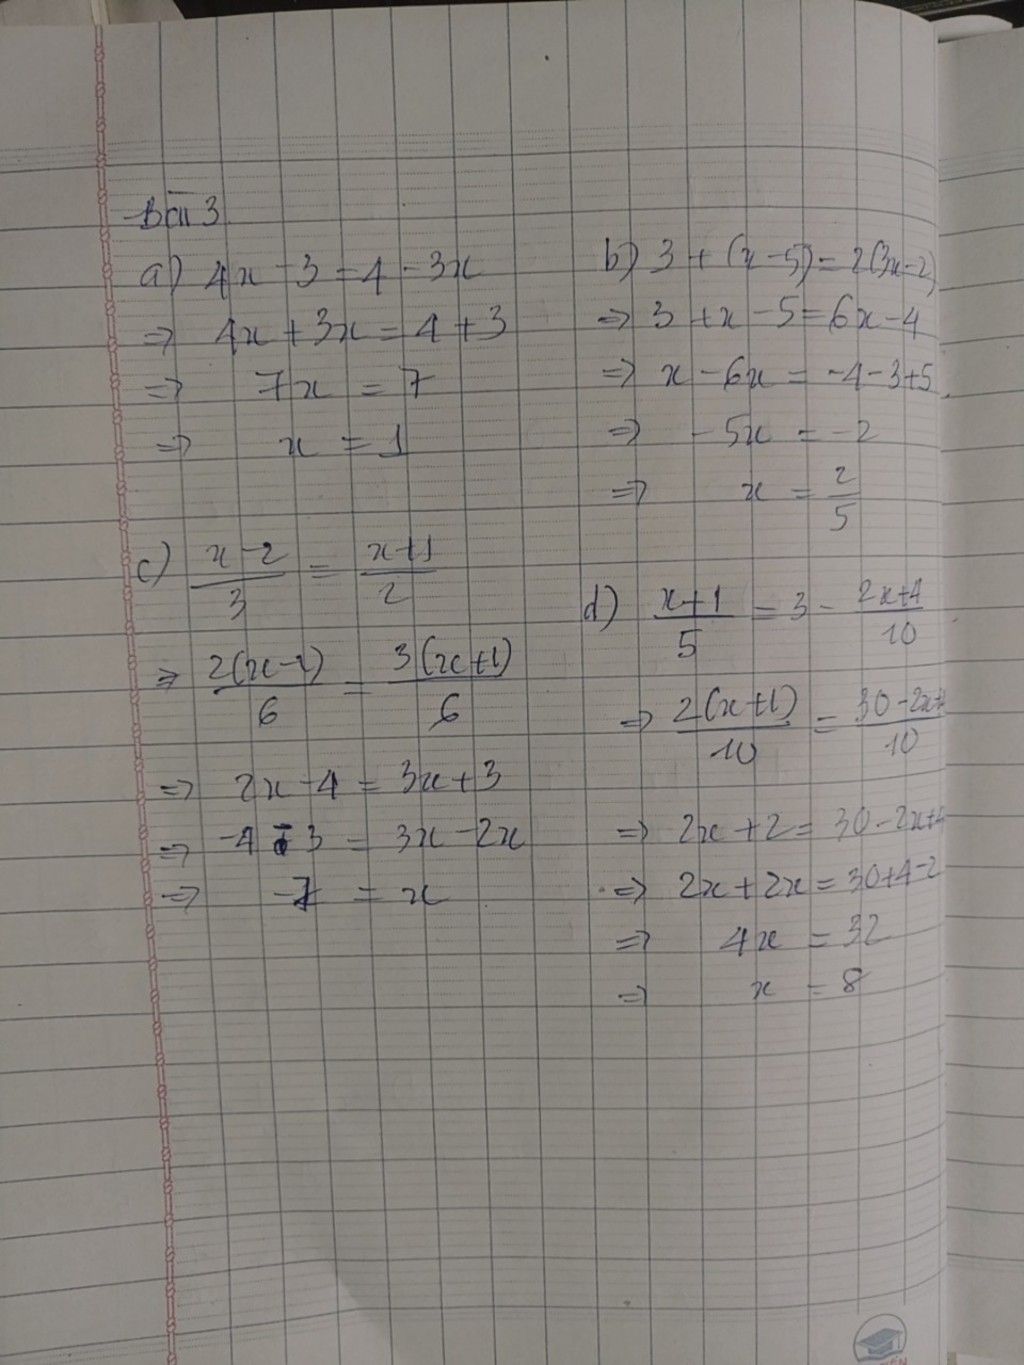 Bài 3
a) 4x - 3 = 4 - 3x
=> 4x + 3x = 4 + 3
=> 7x = 7
=> x = 1
b) 3 + (x - 5) = 2(3x - 2)
=> 3 + x - 5 = 6x - 4
=> x - 6x = -4 - 3 + 5
=> -5x = -2
=> x = 2/5
c) x - 2/3 = x + 1/2
=> 2(x - 2)/6 = 3(x + 1)/6
=> 2x - 4 = 3x + 3
=> -4 - 3 = 3x - 2x
=> -7 = x
d) x + 1/5 = 3 - 2x + 4/10
=> 2(x + 1)/10 = 30 - 2x + 4/10
=> 2x + 2 = 30 - 2x + 4
=> 2x + 2x = 30 + 4 - 2
=> 4x = 32
=> x = 8